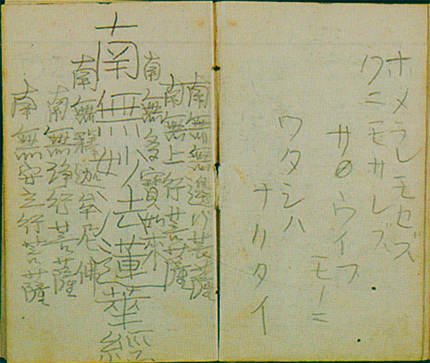 ホメラレモセズ
クニモサレズ
サウイフ
モノニ
ワタシハ
ナリタイ
南無無邊行菩薩
南無上行菩薩
南無多寳如來
南無妙法蓮華経
南無釋迦牟尼佛
南無浄行菩薩
南無安立行菩薩